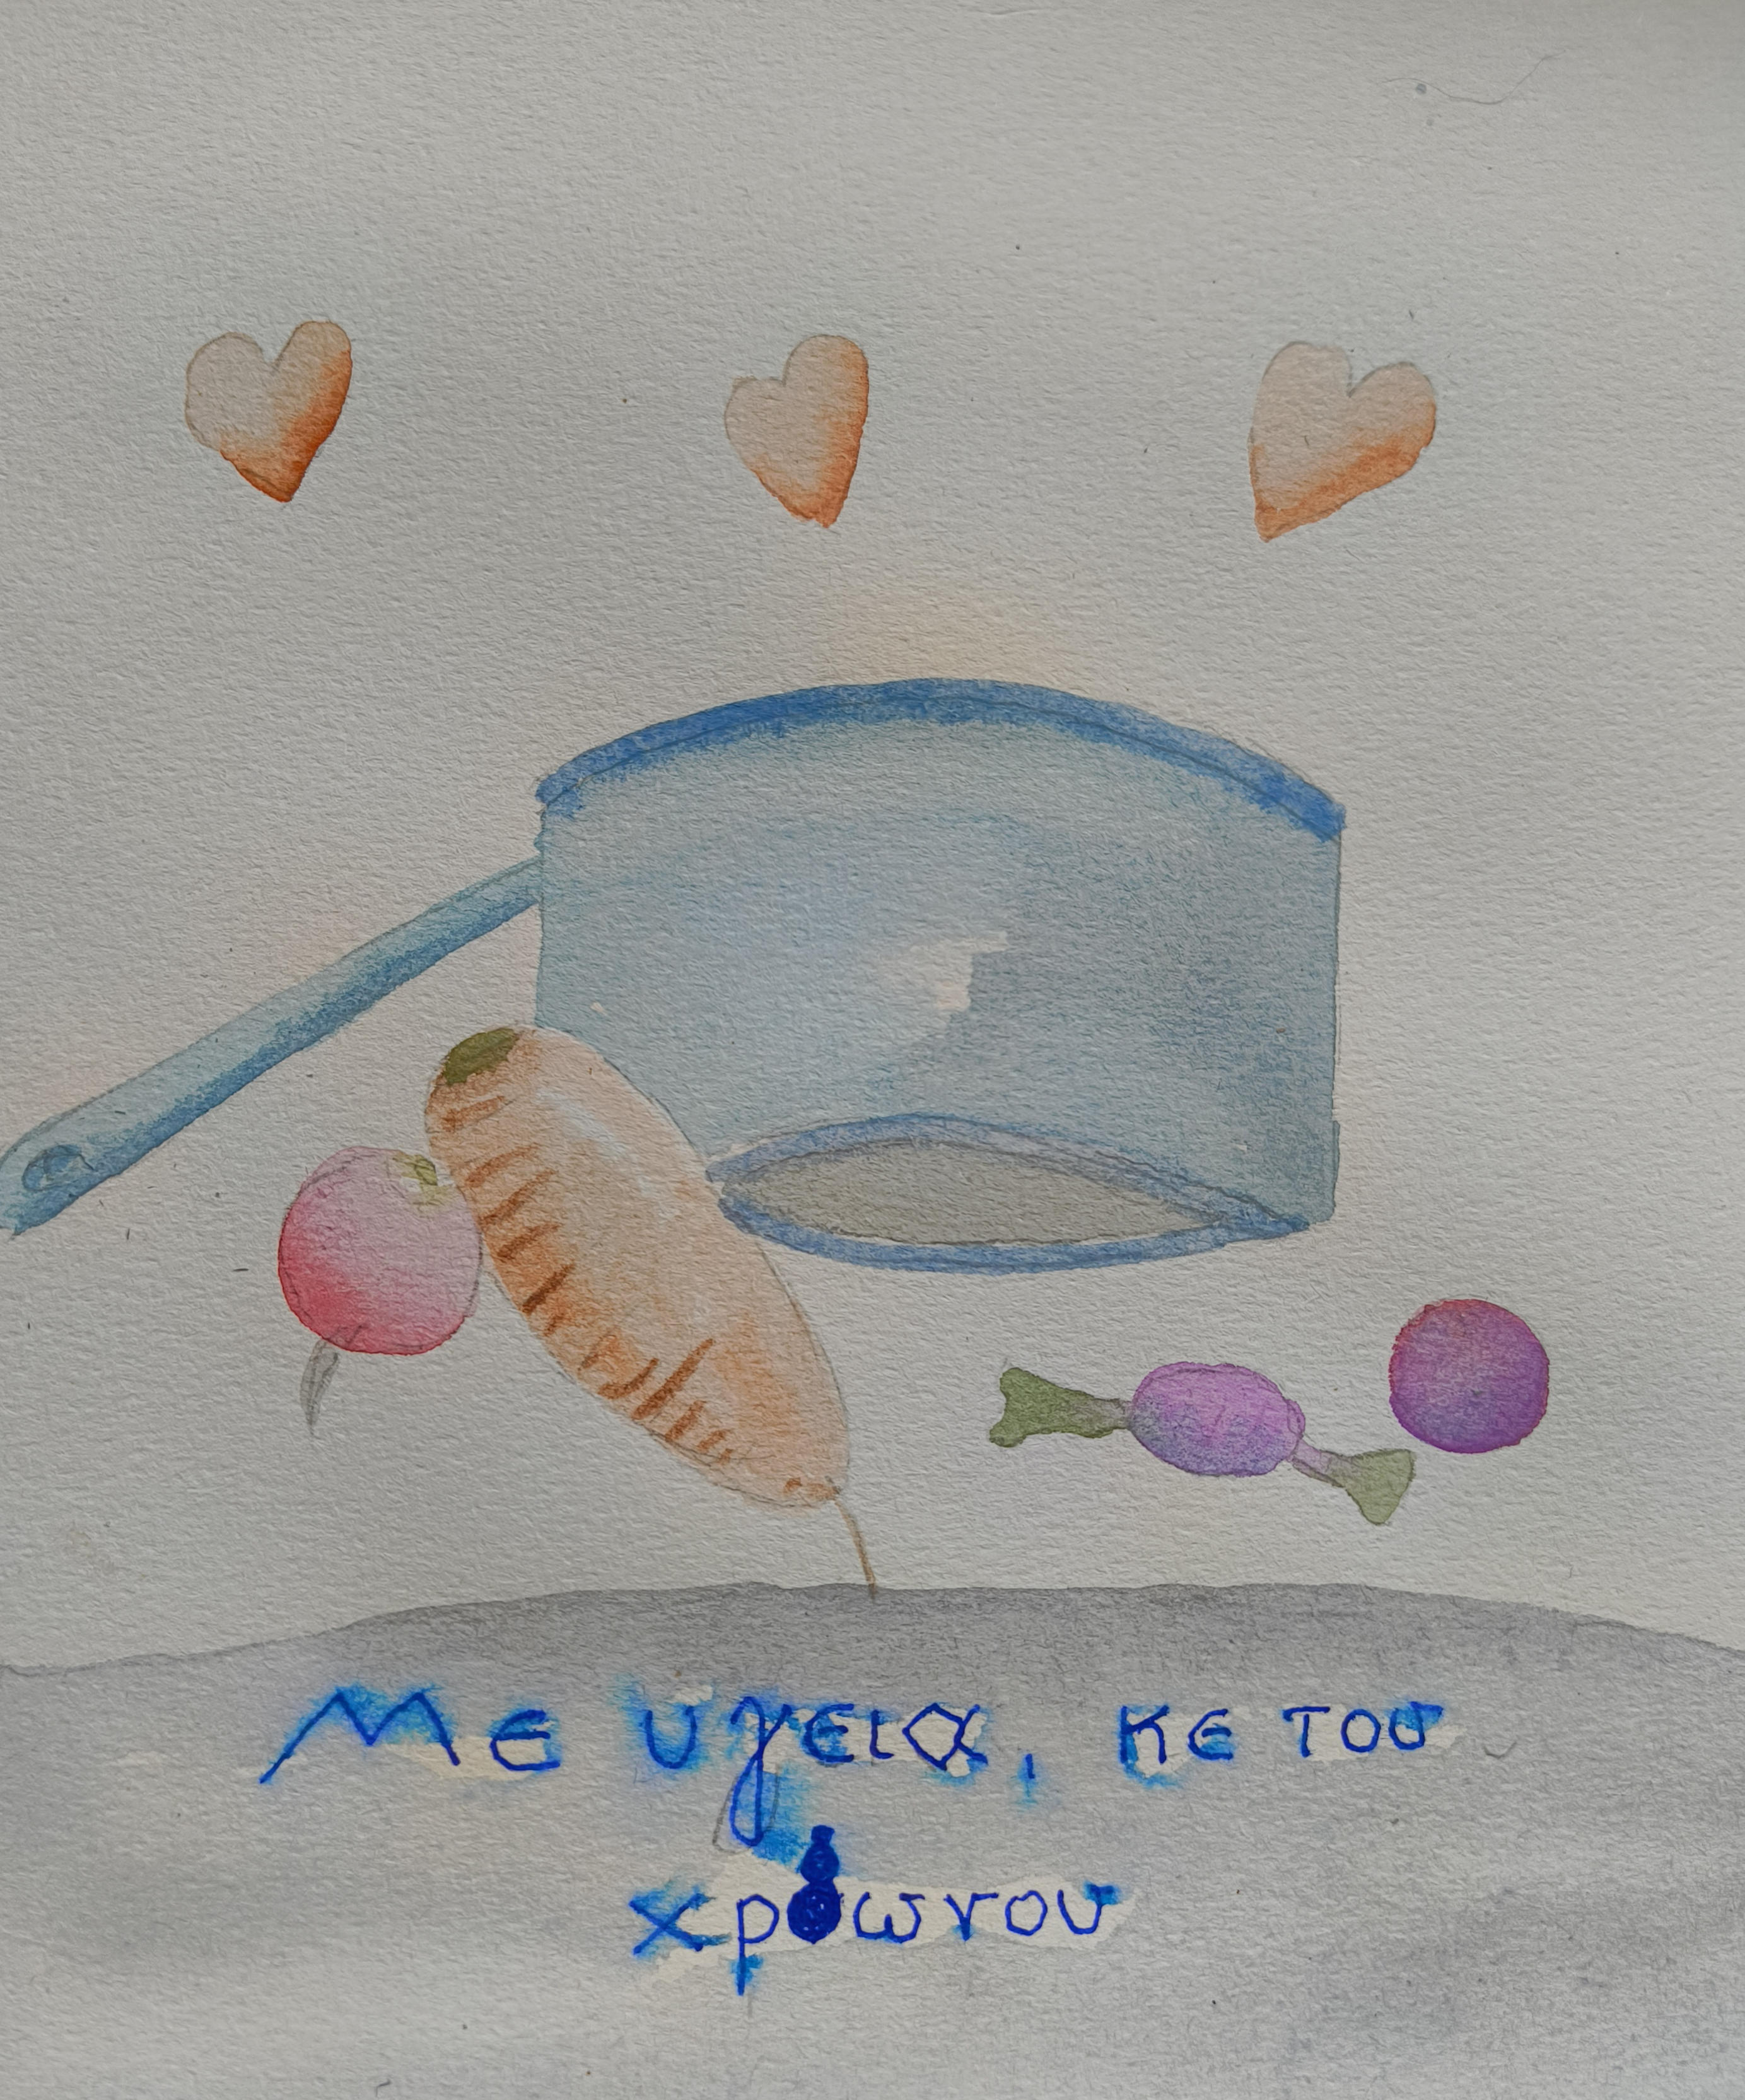 Με υγεια, κε του
χρωνου